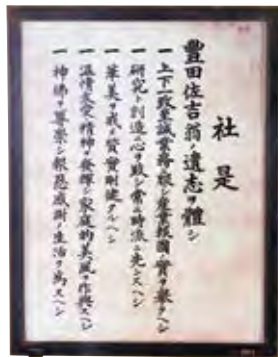 社是
豊田佐吉翁ノ遺志ヲ體シ
一 上下一致至誠業務ニ服シ産業報國ノ實ヲ擧クヘシ
一 研究ト創造ニ心ヲ致シ常ニ時流ニ先ンスヘシ
一 華美ヲ戒メ質實剛健タルヘシ
一 温情友愛ノ精神ヲ發揮シ家庭的美風ヲ作興スヘシ
一 神佛ヲ尊崇シ報恩感謝ノ生活ヲ爲スヘシ